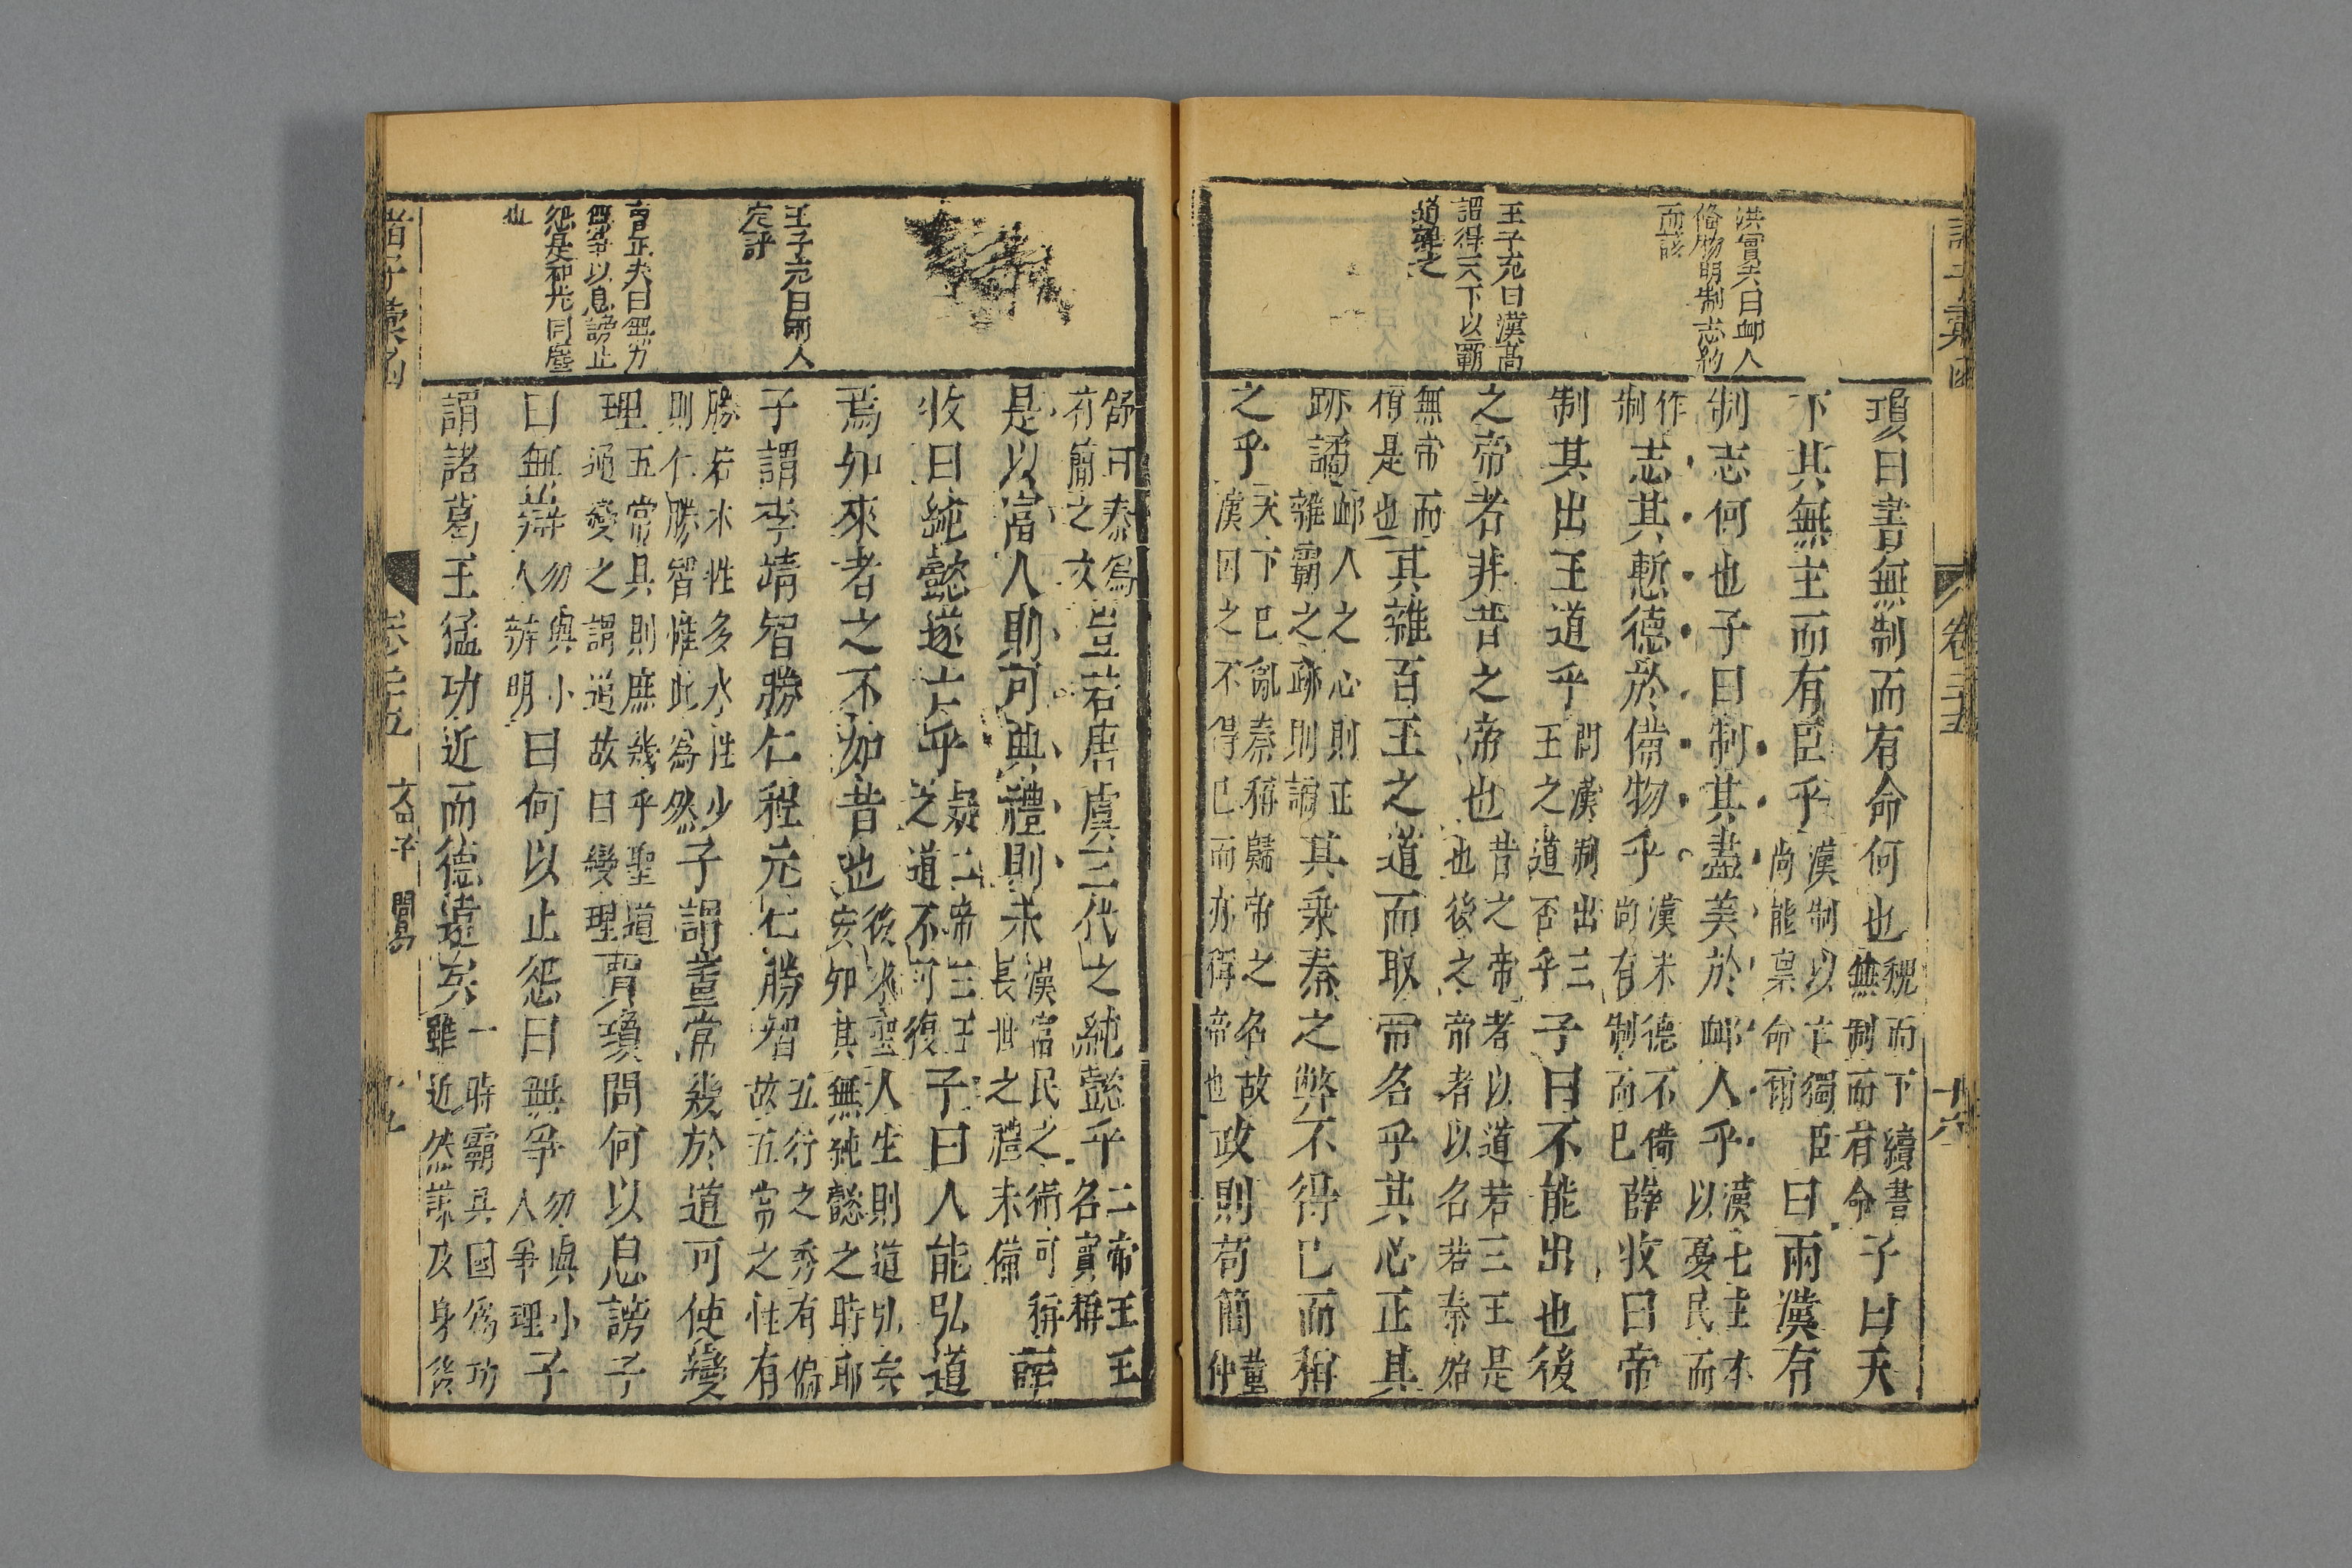 諸子彙函
卷二十五
十八
洪實夫曰䘏人
偹物明制志約
而該
王子充曰漢高
謂得天下以霸
道雜之
瓊曰書無制而有命何也
稅而下續書
無制而有命
子曰天
下其無主而有臣乎
漢制以亡獨臣
尚能稟命爾
曰兩漢有
制志何也子曰制其盡美於䘏人乎
漢七主本
以憂民而
作
制
志其慙德於備物乎
漢未德不偹
尚有制而已
薛收曰帝
制其出王道乎
問漢制出三
王之道否乎
子曰不能出也後
之帝者非昔之帝也
昔之帝者以道若三王是
也後之帝者以名若秦始
無帝而
楷是也
其雜百王之道而取帝名乎其心正其
跡譎
䘏人之心則正
雜霸之跡則譎
其乘秦之弊不得已而稱
之乎
天下已亂秦稱歸帝之名故
漢因之不得已而亦稱帝也
政則苟簡
董
仲
舒曰秦爲
苟簡之文
豈若唐虞三代之純懿乎
二帝王王
名實稱
是以富人則可典禮則未
漢富民之術可稱
長世之禮未備
薛
收曰純懿遂亡乎
疑二帝三王
之道不可復
子曰人能弘道
焉如來者之不如昔也
後來聖人生則道弘矣
安知其無純懿之時耶
子謂李靖智勝仁程元仁勝智
五行之秀有偏
故五常之性有
勝若木性多水性少
則仁勝智惟此爲然
子謂董常幾於道可使變
理
五常具則庶幾乎聖道
通變之謂道故曰變理
賈瓊問何以息謗子
曰無辯
勿與小
人辯明
曰何以止怨曰無爭
勿與小
人爭理
子
謂諸葛王猛功近而德遠矣
一時霸其國爲功
雖近然謀及身後
王子充曰兩人
定評
曾正夫曰無力
無爭以息謗止
怨是和光同塵
諸子彙函
卷二十五
文中子
問易
十九